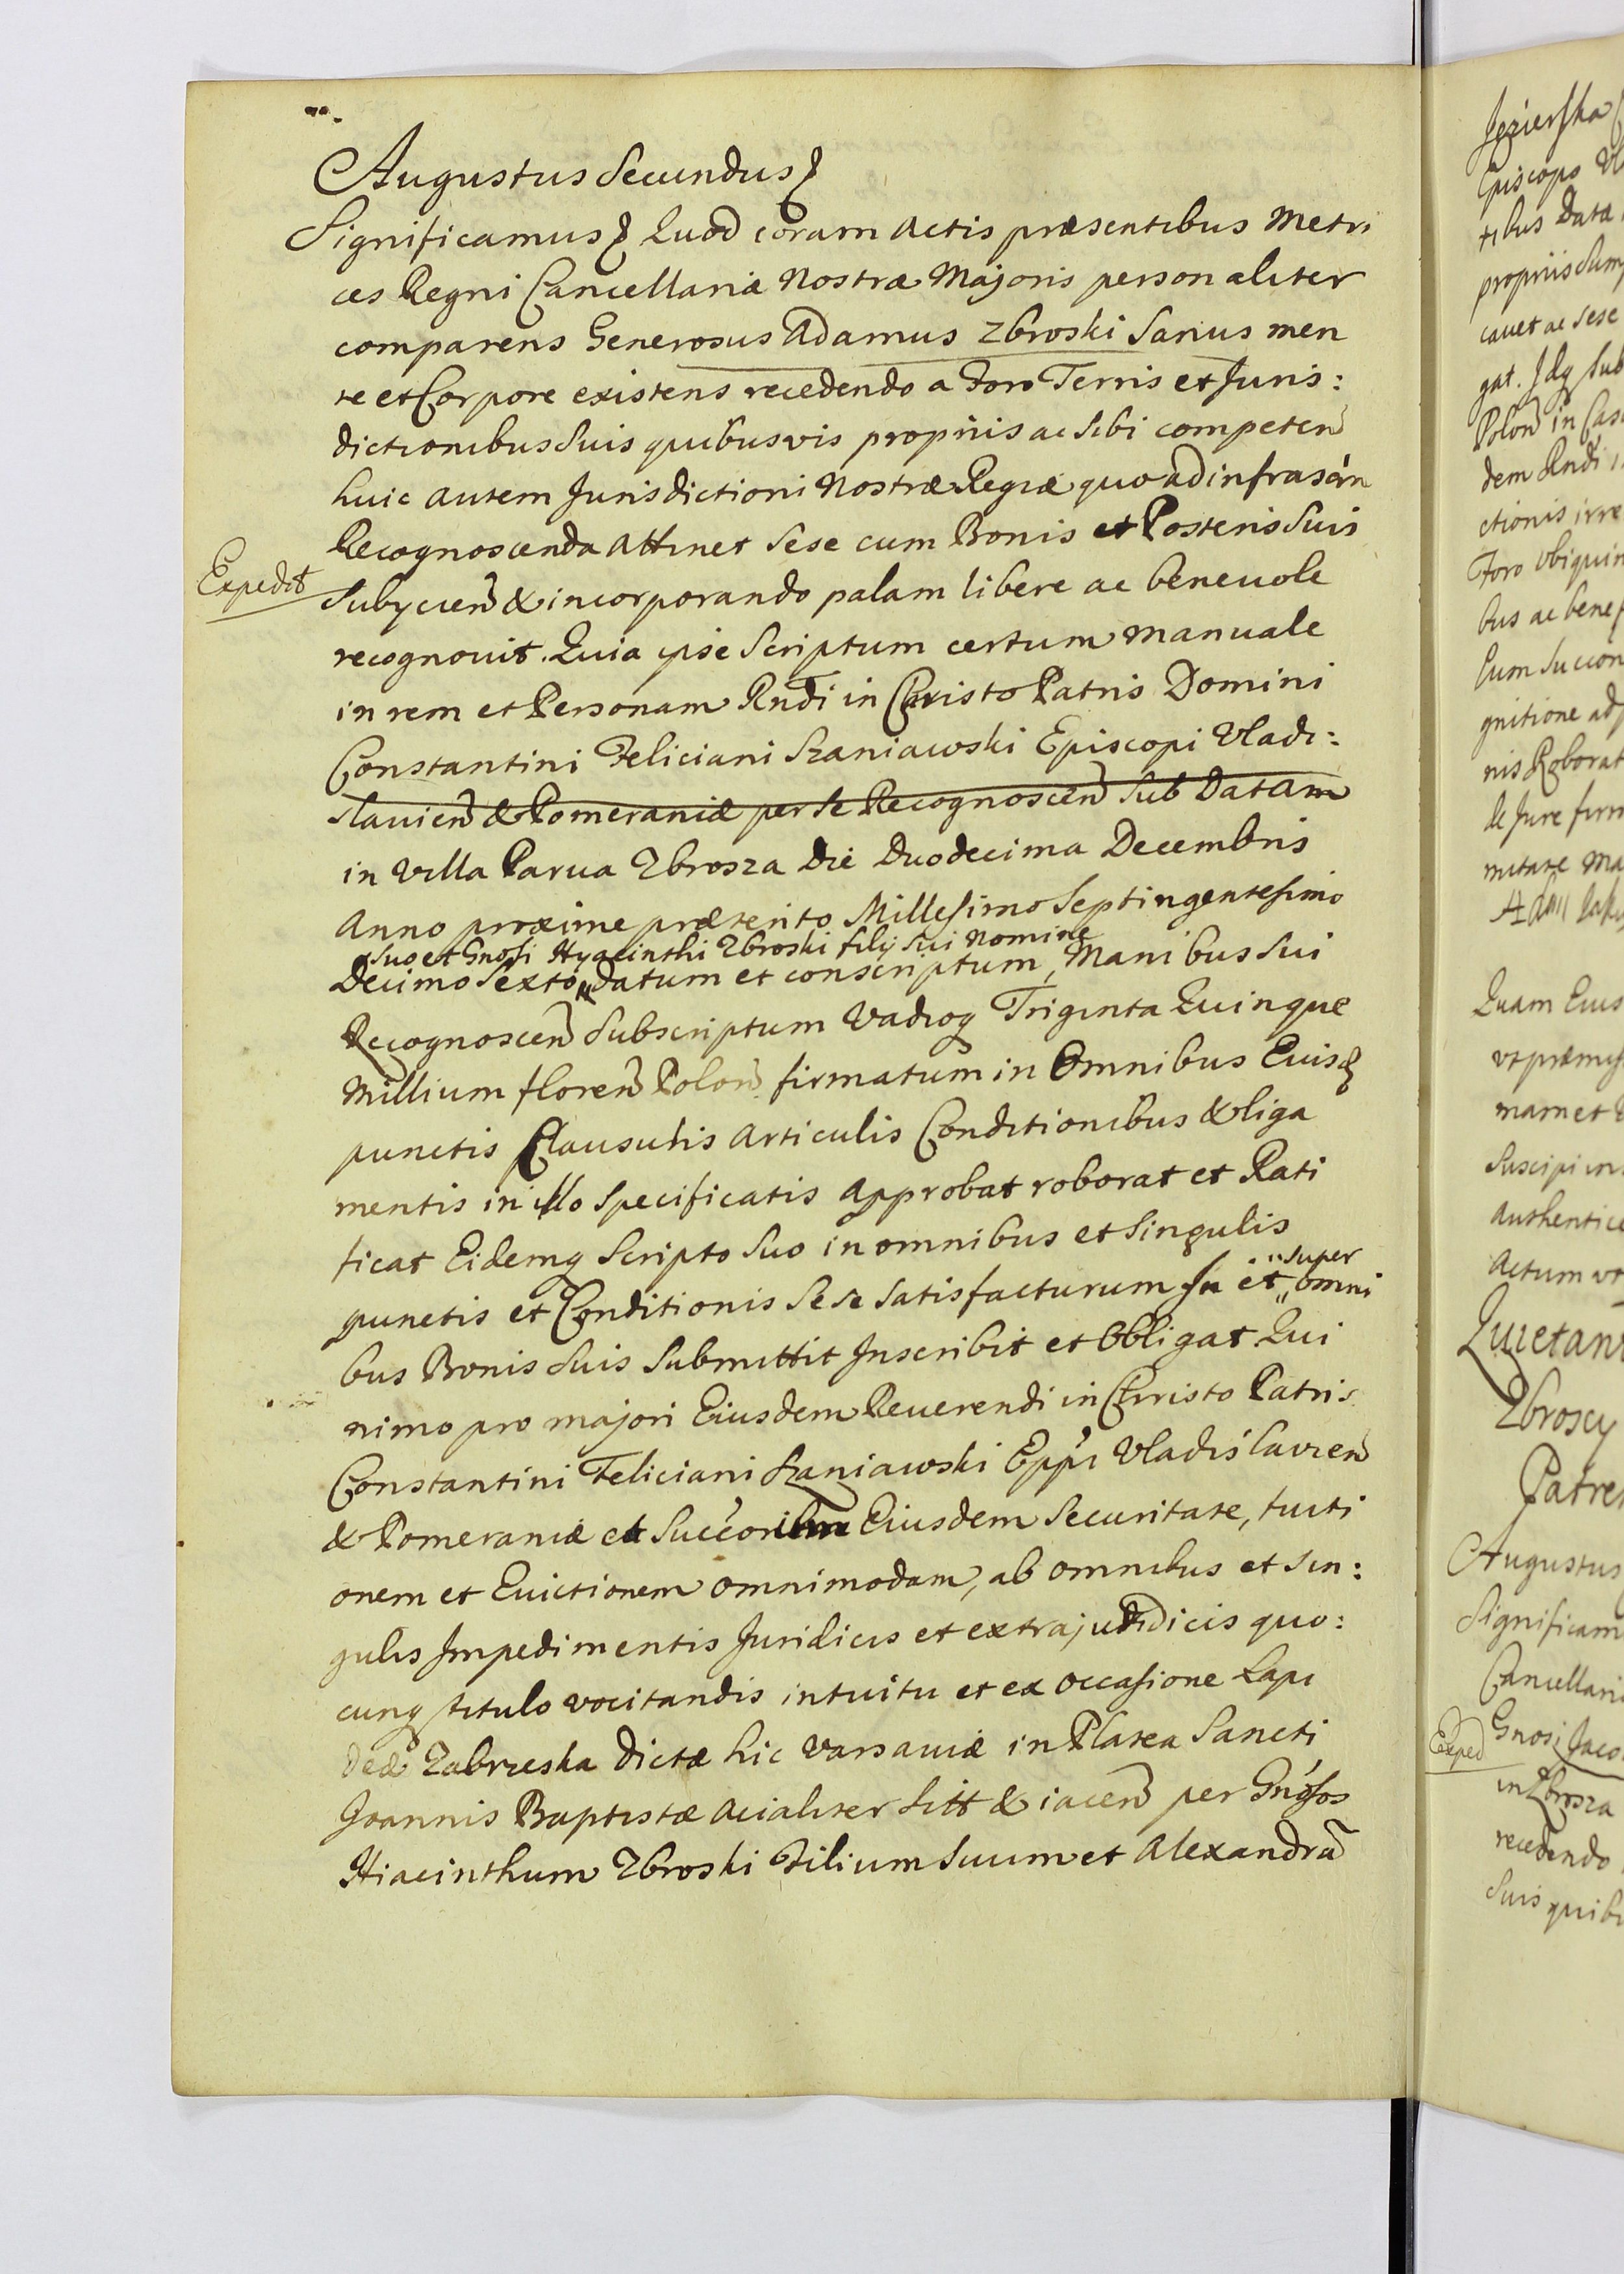 Augustus Secundus
Significamus Quod coram Actis præsentibus Metri
ces Regni Cancellariæ Nostræ Majoris personaliter
comparens Generosus Adamus Zbroski Sanus men
te et Corpore existens recedendo a Foro Terris et Juris:
dictionibus Suis quibusvis proprijs ac sibi competen
huic autem Jurisdictioni Nostræ Regiæ quo ad infrascrn
Recognoscenda attinet Sese cum Bonis et Posteris Suis
Expedit
Subycien & incorporando palam libere ac beneuole
recognouit. Quia ipse Scriptum certum manuale
in rem et Personam Rndi in Christo Patris Domini
Constantini Feliciani Szaniawski Episcopi Vladi:
slauien & Pomeraniæ per se Recognoscen Sub Datam
in Villa Parua Zbrosza Die Duodecima Decembris
Anno proxime præterito Millesimo Septingentesimo
Suo et Gnosi Hyacinthi Zbroski filij Sui Nomine
Decimo Sexto Datum et conscriptum, Manibus Sui
Recognoscen Subscriptum Vadioq Triginta Quinque
Millium floren Polon firmatum in Omnibus Euis
punctis Clausulis Articulis Conditionibus & liga
mentis in illo Specificatis Approbat roborat et Rati
ficat Eidemq Scripto Suo in omnibus et Singulis
super
punctis et Conditionis Sese Satisfacturum In et omni
bus Bonis Suis Submittit Inscribit et Obligat. Qui
nimo pro majori Eiusdem Reuerendi in Christo Patris
Constantini Feliciani Szaniawski Eppi Vladislauien
& Pomeraniæ et Succoribm Eiusdem Securitate, tuiti
onem et Euictionem omnimodam, ab omnibus et Sin:
gulis Impedimentis Juridicis et extrajudicis quo:
cunq titulo vocitandis intuitu et ex occasione Lapi
deæ Zabrzeska Dictæ hic Varsauiæ in Platea Sancti
Joannis Baptistæ Acialiter Sitt & iacen per Gnosos
Hiacinthum Zbroski Filium Suum et Alexandra
Jezierska
Episcopo
tibus Data
proprijs Sum
cauet ac Sese
gat. Idq Sub
Polon in Cas
dem Rndi
ctionis irre
Foro Vbiquin
bus ac bene
Eum Succon
gnitione ad
nis Roborat
de Jure firm
mitate ma
Quam Eius
vt præmis
mam et
Suscipi in
authentice
Actum vt
Quietan
Zbroscy
Patre
Augustus
Significam
Cancellari
Exped
Gnosi Jaco
in Zbrosza
recedendo
Suis quibu